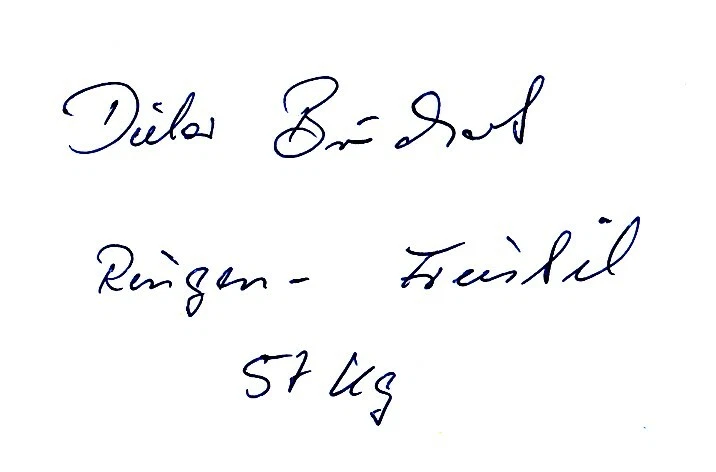 Dieter Brüchert
Ringen - Freistil
57 kg